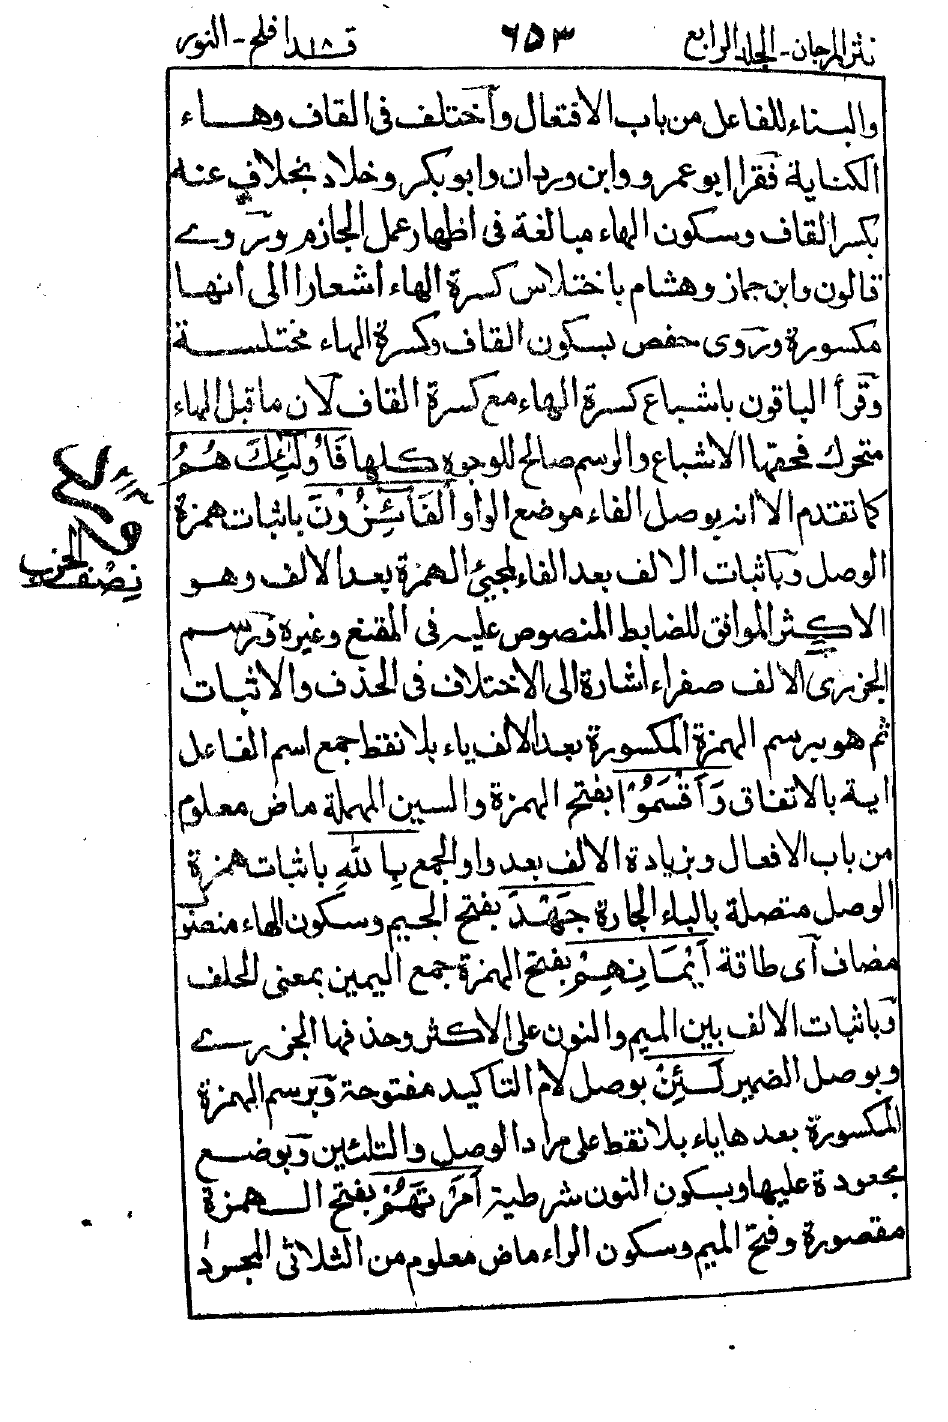 نثر المرجان - الجلد الرابع ٦٥٣ قد افلح ١٨ - النور
والبناء للفاعل من باب الافتعال وأختلف فى القاف وهاء
الكناية فقرا ابو عمرو وابن وردان وابو بكر وخلاد بخلاف عنه
بكسر القاف وسكون الهاء مبالغة فى اظهار عمل الجازم وروے
قالون وابن جماز وهشام باختلاس كسرة الهاء اشعارا الى انها
مكسورة وروى حفص بسكون القاف وكسرة الهاء مختلسة
وقرأ الباقون باشباع كسرة الهاء مع كسرة القاف لان ما قبل الهاء
متحرك فحقها الاشباع والرسم صالح للوجوه كلها فَاُولٰٓئِكَ هُمُ
كما تقدم الا انه بوصل الفاء موضع الواو الْفَآئِزُوْنَ باثبات همزة
الوصل وباثبات الالف بعد الفاء لمجيئ الهمزة بعد الالف وهو
الاكثر الموافق للضابط المنصوص عليه فى المقنع وغيره ورسم
الجزرى الالف صفراء اشارة الى الاختلاف فى الحذف والاثبات
ثم هو برسم الهمزة المكسورة بعد الالف ياء بلا نقط جمع اسم الفاعل
اية بالاتفاق وَاَقْسَمُوْا بفتح الهمزة والسين المهملة ماض معلوم
من باب الافعال وبزيادة الالف بعد واو الجمع بِاللّٰهِ باثبات همزة
الوصل متصلة بالباء الجارة جَهْدَ بفتح الجيم وسكون الهاء منصوب
مضاف أى طاقة اَيْمَانِهِمْ بفتح الهمزة جمع اليمين بمعنى الحلف
وباثبات الالف بين الميم والنون على الاكثر وحذفها الجزرے
وبوصل الضمير لَئِنْ بوصل لام التاكيد مفتوحة وبرسم الهمزة
المكسورة بعدها ياء بلا نقط على مراد الوصل والتليين وبوضع
مجعودة عليها وبسكون النون شرطية اَمَرْتَهُمْ بفتح الهمزة
مقصورة وفتح الميم وسكون الراء ماض معلوم من الثلاثى المجرد
نصف الحزب